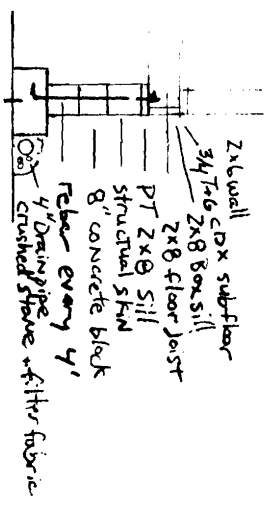 2x6 wall
3/4 T+G CDX subfloor
2x8 Box sill
2x8 floor joist
PT 2x8 Sill
structual skin
8" concrete block
reber every 4'
4" Drainpipe
crushed stone + filter fabric